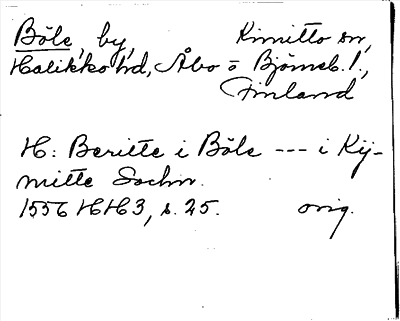 Böle, by, Kimitto sn,
Halikko hd, Åbo o Björneb. l.,
Finland
H: Beritte i Böle --- i Kij-
mitte Sochn.
1556 HH3, s. 25. orig.